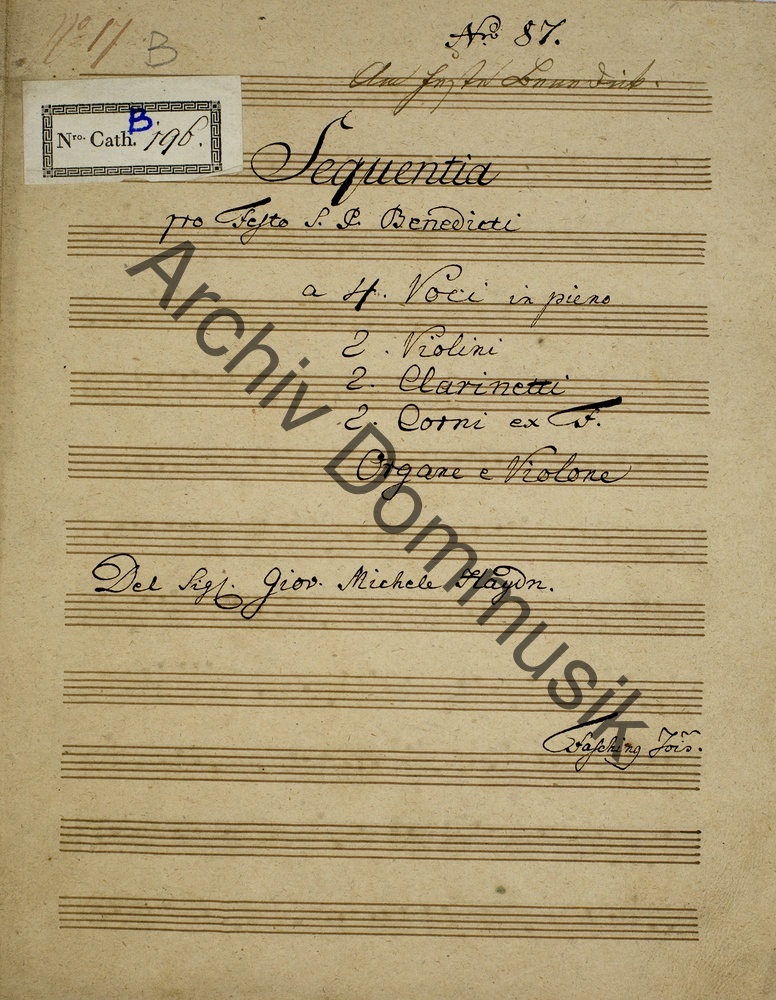 No 17 B
Nro. 87.
Am Feste Benedict.
B
Nro. Cath. 196.
Sequentia
pro Festo S. P. Benedicti
a 4. Voci in pieno
2. Violini
2. Clarinetti
2. Corni ex F.
Organo e Violone
Del Sigl. Giov. Michele Haydn.
Fasching Jois.
Archiv Dommusik